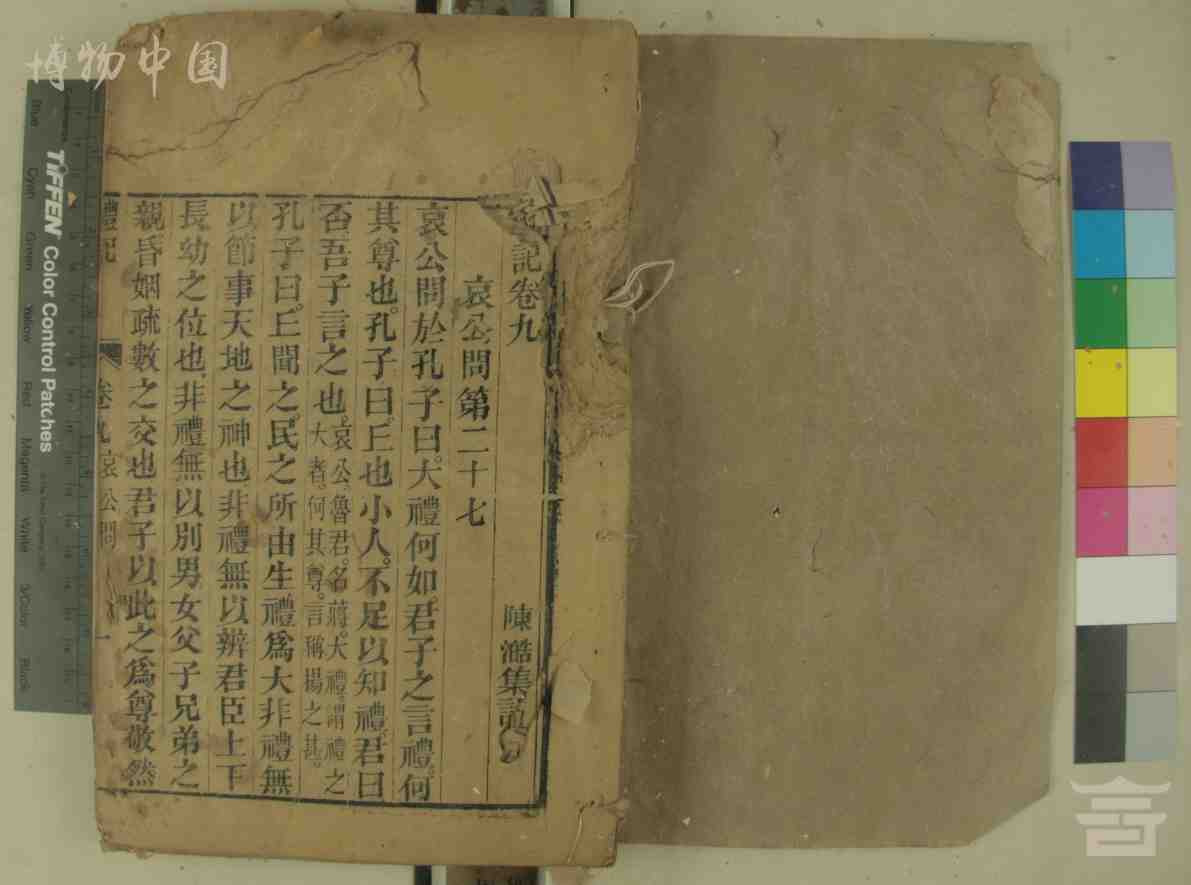 博物中国
記卷九
陳澔集說
哀公問第二十七
哀公問於孔子曰。大禮何如。君子之言禮。何
其尊也。孔子曰。丘也小人。不足以知禮。君曰
否。吾子言之也。哀公。魯君。名蔣。大禮。謂禮之
大者。何其尊。言稱揚之甚。
孔子曰。丘聞之。民之所由生。禮爲大。非禮無
以節事天地之神也。非禮無以辨君臣上下
長幼之位也。非禮無以別男女父子兄弟之
親昏姻疏數之交也。君子以此之爲尊敬然
禮記 卷九 哀公問 一
TIFFEN Color Control Patches
Blue
Cyan
Green
Yellow
Red
Magenta
White
3/Color
Black